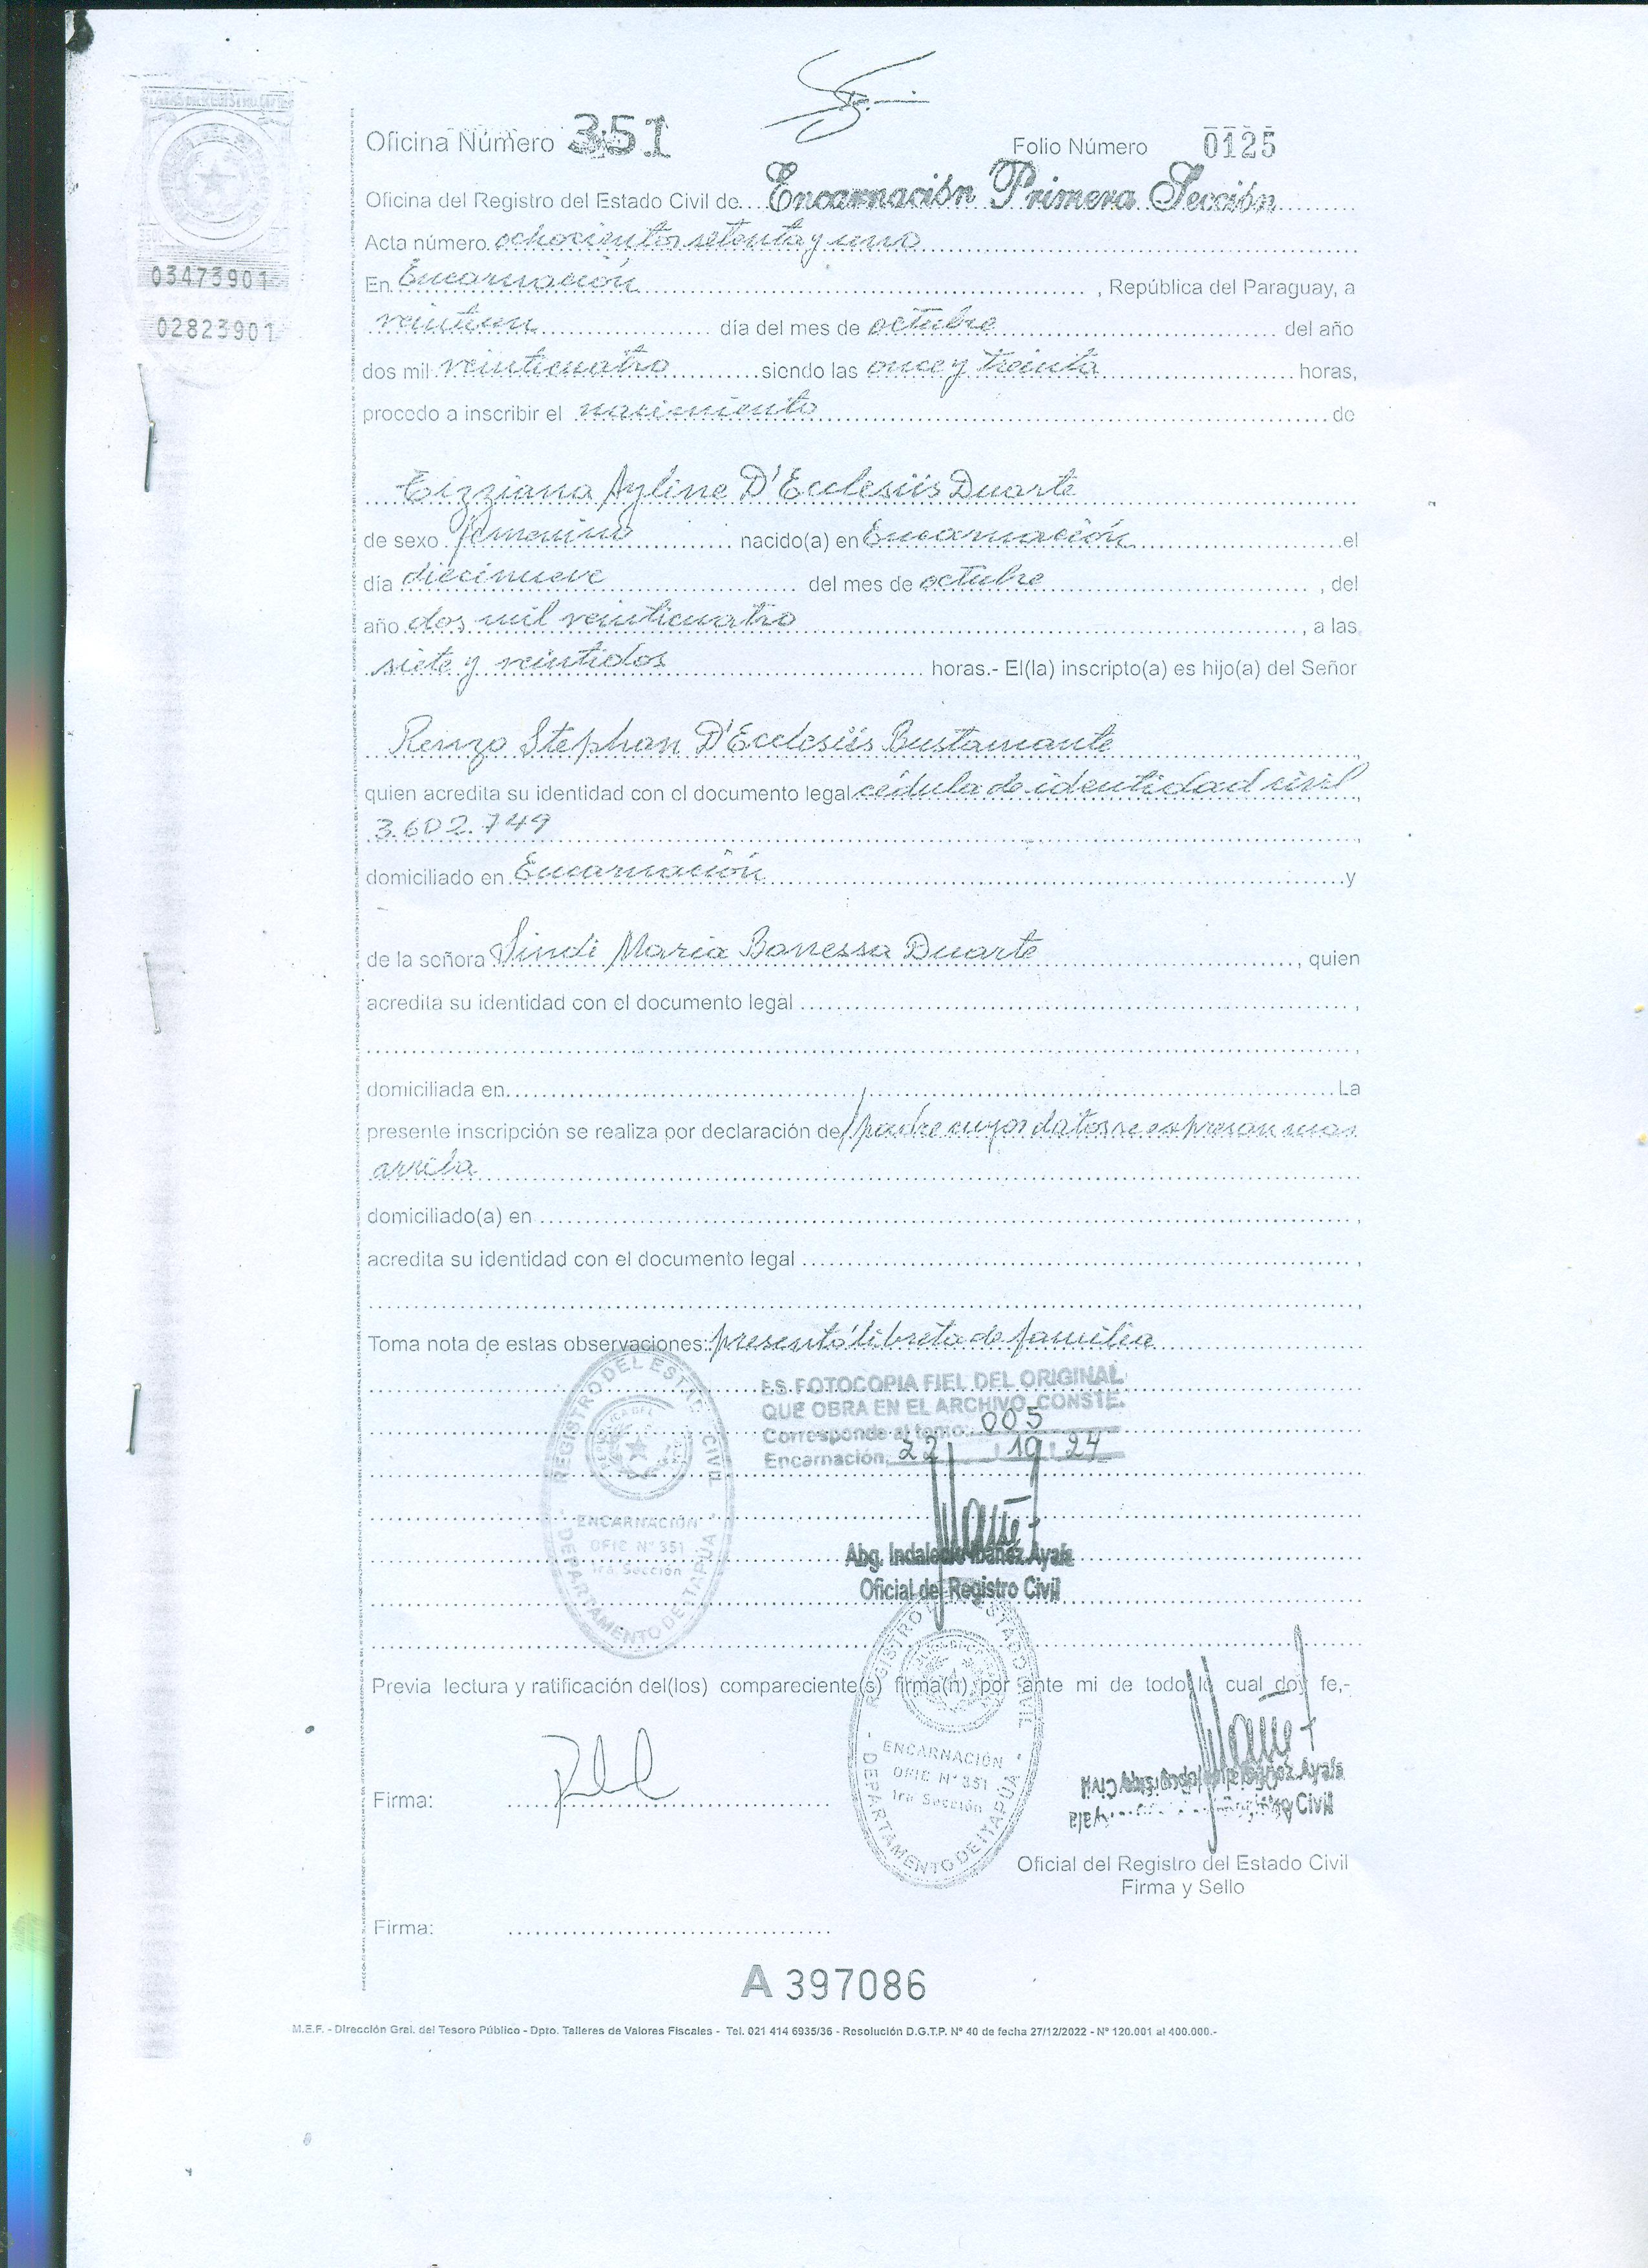 Oficina Número 351
Folio Número 0125
Oficina del Registro del Estado Civil de Encarnación Primera Sección
Acta número ochocientos setenta y uno
03473901
En Encarnación, República del Paraguay, a
02823901
veintiun día del mes de octubre del año
dos mil veinticuatro siendo las once y treinta horas,
procedo a inscribir el nacimiento de
Tizziana Ayline D'Eclesiis Duarte
de sexo femenino nacido(a) en Encarnación el
día diecinueve del mes de octubre, del
año dos mil veinticuatro, a las
siete y veintidos horas.- El(la) inscripto(a) es hijo(a) del Señor
Renzo Stephan D'Eclesiis Bustamante
quien acredita su identidad con el documento legal cédula de identidad civil,
3.602.749,
domiciliado en Encarnación y
de la señora Sindi Maria Banessa Duarte, quien
acredita su identidad con el documento legal,
domiciliada en La
presente inscripción se realiza por declaración del padre cuyos datos se expresan mas
arriba
domiciliado(a) en,
acredita su identidad con el documento legal,
Toma nota de estas observaciones: presentó libreta de familia
REGISTRO DEL ESTADO CIVIL
ENCARNACIÓN
OFIC Nº 351
1ra Sección
DEPARTAMENTO DE ITAPÚA
ES FOTOCOPIA FIEL DEL ORIGINAL
QUE OBRA EN EL ARCHIVO, CONSTE.
Corresponde al tomo: 005
Encarnación, 22 / 10 / 24
Abg. Indalecio Ibañez Ayala
Oficial del Registro Civil
Previa lectura y ratificación del(los) compareciente(s) firma(n) por ante mi de todo lo cual doy fe,-
REGISTRO ESTADO CIVIL
ENCARNACIÓN
OFIC Nº 351
1ra Sección
DEPARTAMENTO DE ITAPÚA
Firma:
Oficial del Registro del Estado Civil
Firma y Sello
Firma:
A 397086
M.E.F. - Dirección Gral. del Tesoro Público - Dpto. Talleres de Valores Fiscales - Tel. 021 414 6935/36 - Resolución D.G.T.P. Nº 40 de fecha 27/12/2022 - Nº 120.001 al 400.000.-